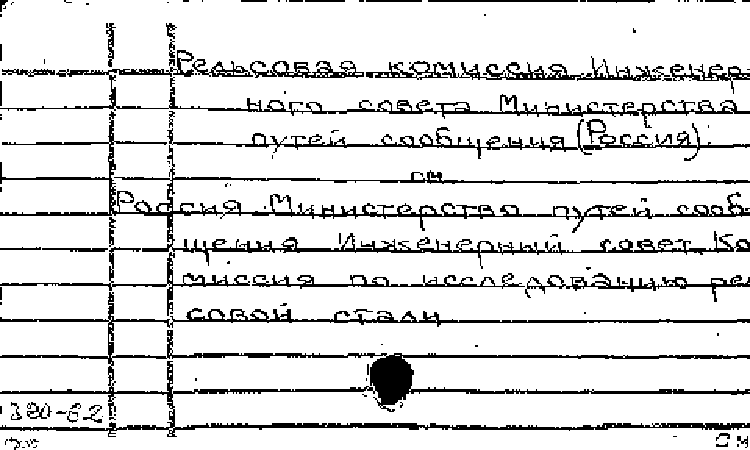 Рельсовая комиссия Инженер-
ного совета Министерства
путей сообщения (Россия).
см
Россия. Министерство путей сооб-
щения. Инженерный совет. Ко-
миссия по исследованию рель-
совой стали
380-62
см